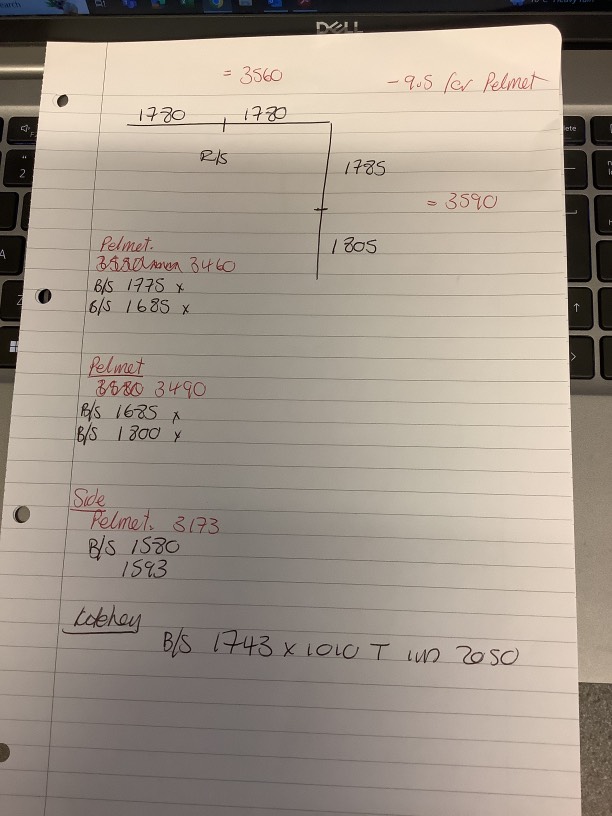 DELL
= 3560
-9.5 for Pelmet
1780 1780
R/S
1785
= 3590
1805
Pelmet.
3460
B/S 1775 x
B/S 1685 x
Pelmet
3490
B/S 1685 x
B/S 1800 x
Side
Pelmet. 3173
B/S 1580
1593
B/S 1743 x 1010 T 2050